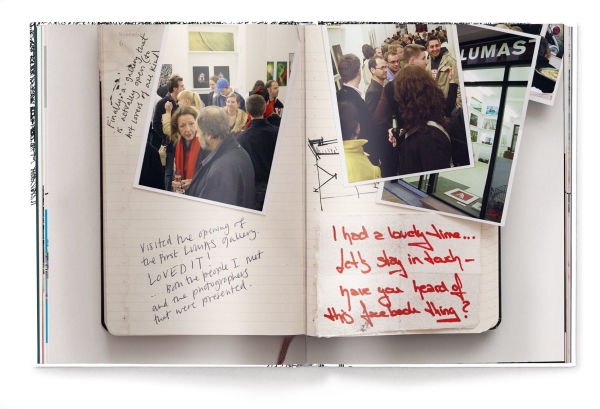 Finally a gallery that
is actually open to
Art Lovers of all kind
Visited the opening of
the first LUMAS gallery.
LOVED IT!
... Both the people I met
and the photographers
that were presented.
LUMAS
I had a lovely time...
Let's stay in touch -
have you heard of
this facebook thing?